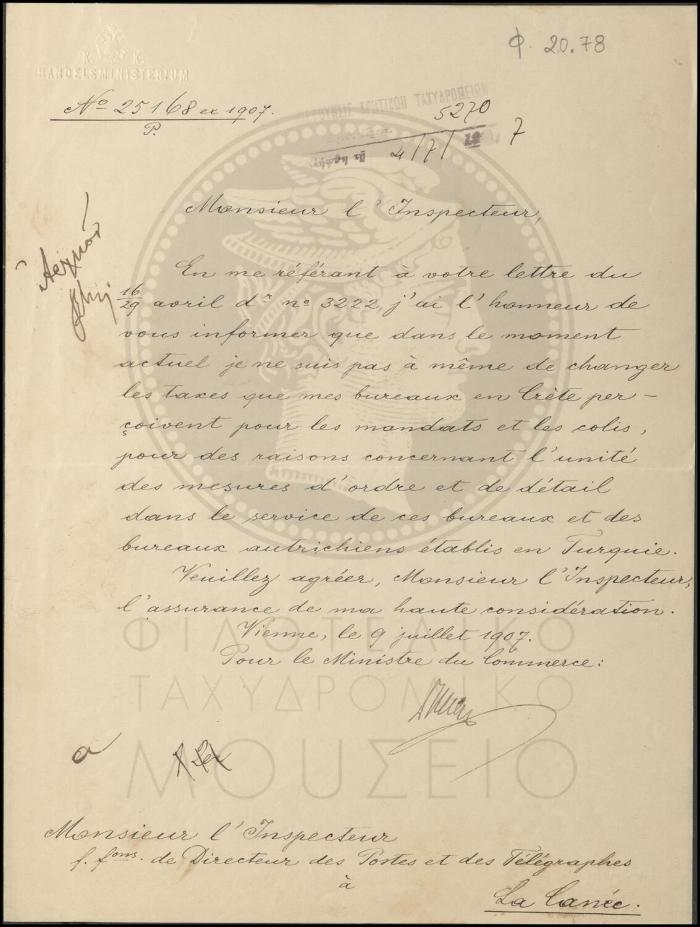 Φ. 20.78
K. K.
HANDELSMINISTERIUM
No 25168 ex 1907.
P.
ΚΡΗΤΙΚΩΝ ΤΑΧΥΔΡΟΜΕΙΩΝ
5270
4/7/ 7
Monsieur l'Inspecteur,
En me référant à votre lettre du
16/29 avril d. no 3222, j'ai l'honneur de
vous informer que dans le moment
actuel je ne suis pas à même de changer
les taxes que mes bureaux en Crète per-
çoivent pour les mandats et les colis,
pour des raisons concernant l'unité
des mesures d'ordre et de détail
dans le service de ces bureaux et des
bureaux autrichiens établis en Turquie.
Veuillez agréer, Monsieur l'Inspecteur,
l'assurance de ma haute considération.
Vienne, le 9 juillet 1907.
Pour le Ministre du Commerce:
ΦΙΛΟΤΕΛΙΚΟ
ΤΑΧΥΔΡΟΜΙΚΟ
ΜΟΥΣΕΙΟ
a
Monsieur l'Inspecteur
f. fons. de Directeur des Postes et des Télégraphes
à
La Canée.